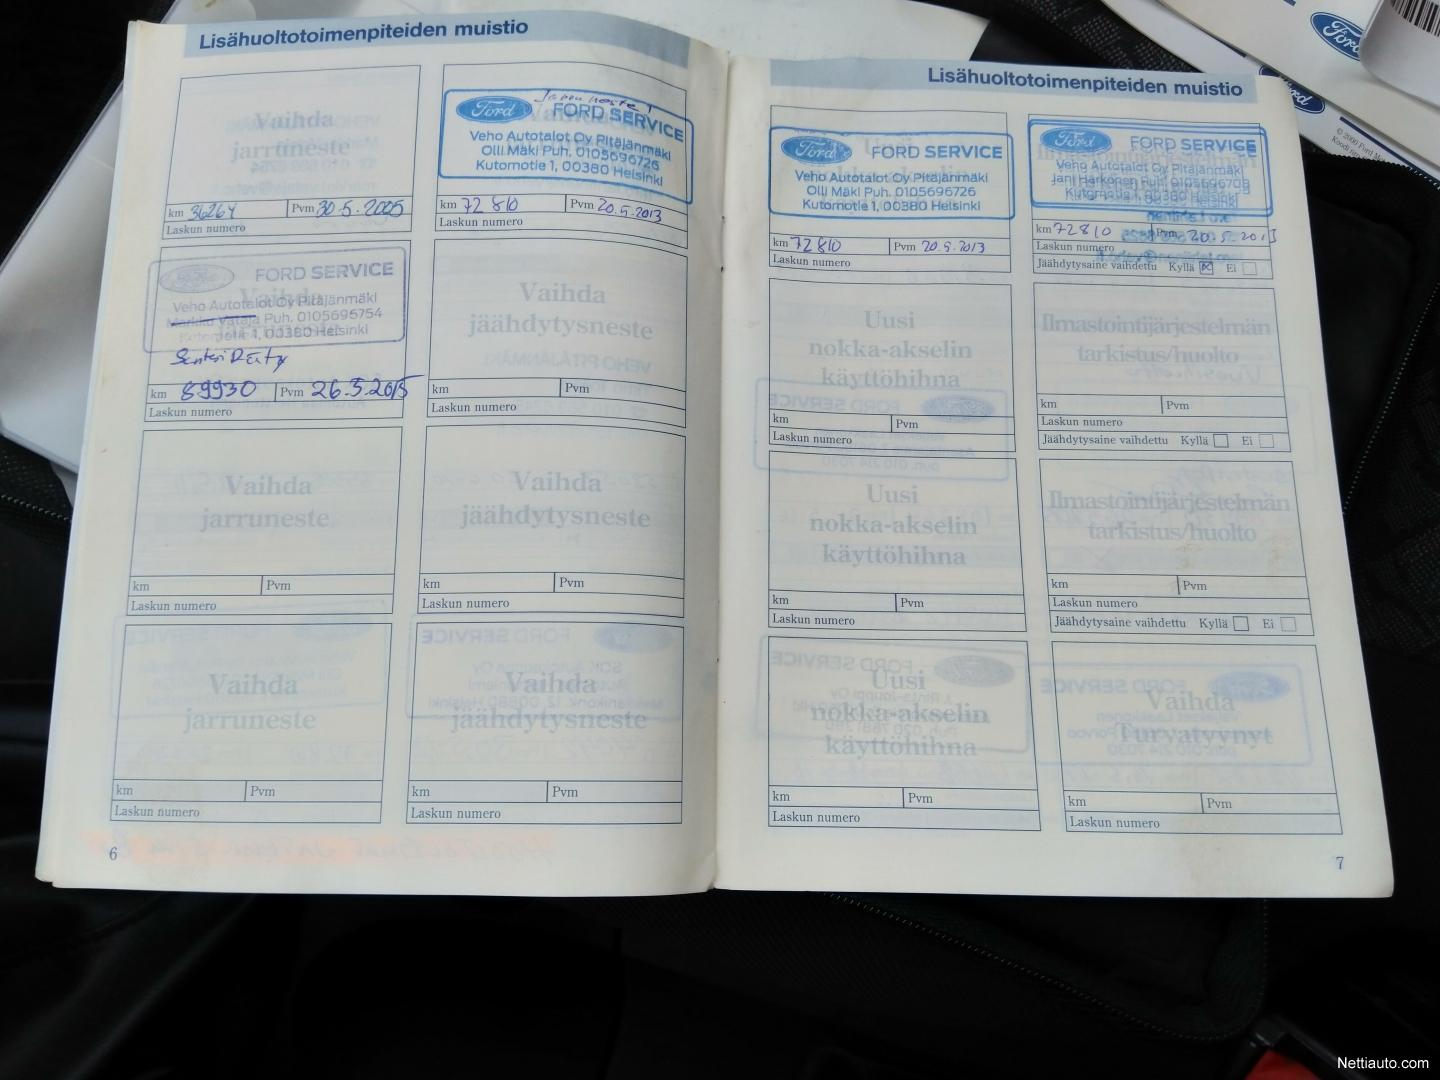 Lisähuoltotoimenpiteiden muistio
Vaihda
jarruneste
km 36264 Pvm 30.5.2005
Laskun numero
Ford FORD SERVICE
Veho Autotalot Oy Pitäjänmäki
Olli Mäki Puh. 0105696726
Kutomotie 1, 00380 Helsinki
km 72 810 Pvm 20.5.2013
Laskun numero
FORD SERVICE
Veho Autotalot Oy Pitäjänmäki
Markku Vataja Puh. 0105696754
1, 00380 Helsinki
km 89930 Pvm 26.5.2015
Laskun numero
Vaihda
jäähdytysneste
km Pvm
Laskun numero
Vaihda
jarruneste
km Pvm
Laskun numero
Vaihda
jäähdytysneste
km Pvm
Laskun numero
Vaihda
jarruneste
km Pvm
Laskun numero
Vaihda
jäähdytysneste
km Pvm
Laskun numero
6
Lisähuoltotoimenpiteiden muistio
Ford FORD SERVICE
Veho Autotalot Oy Pitäjänmäki
Olli Mäki Puh. 0105696726
Kutomotie 1, 00380 Helsinki
km 72810 Pvm 20.5.2013
Laskun numero
Ford FORD SERVICE
Veho Autotalot Oy Pitäjänmäki
km 72810 Pvm 20.5.2013
Laskun numero
Jäähdytysaine vaihdettu Kyllä Ei
Uusi
nokka-akselin
käyttöhihna
km Pvm
Laskun numero
Ilmastointijärjestelmän
tarkistus/huolto
km Pvm
Laskun numero
Jäähdytysaine vaihdettu Kyllä Ei
Uusi
nokka-akselin
käyttöhihna
km Pvm
Laskun numero
Ilmastointijärjestelmän
tarkistus/huolto
km Pvm
Laskun numero
Jäähdytysaine vaihdettu Kyllä Ei
Uusi
nokka-akselin
käyttöhihna
km Pvm
Laskun numero
Vaihda
Turvatyynyt
km Pvm
Laskun numero
7
Ford
Nettiauto.com